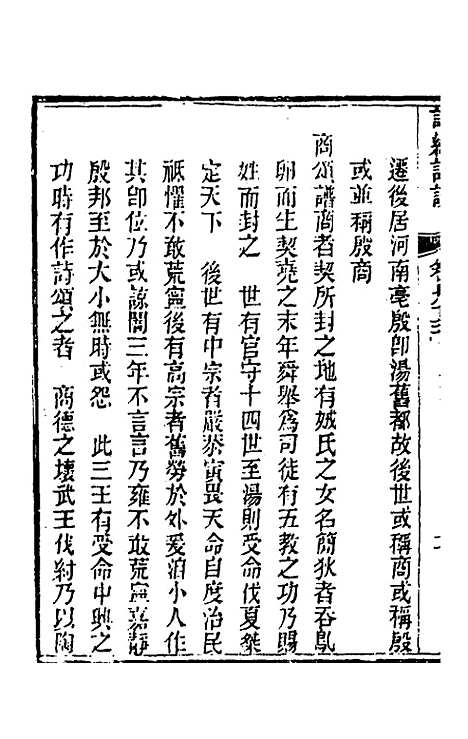 遷後居河南亳殷卽湯舊都故後世或稱商或稱殷
或並稱殷商
商頌譜商者契所封之地有娀氏之女名簡狄者吞鳦
卵而生契堯之末年舜舉爲司徒有五教之功乃賜
姓而封之　世有官守十四世至湯則受命伐夏桀
定天下　後世有中宗者嚴恭寅畏天命自度治民
祗懼不敢荒寧後有高宗者舊勞於外爰洎小人作
其卽位乃或諒闇三年不言言乃雍不敢荒寧嘉靜
殷邦至於大小無時或怨　此三王有受命中興之
功時有作詩頌之者　商德之壞武王伐紂乃以陶